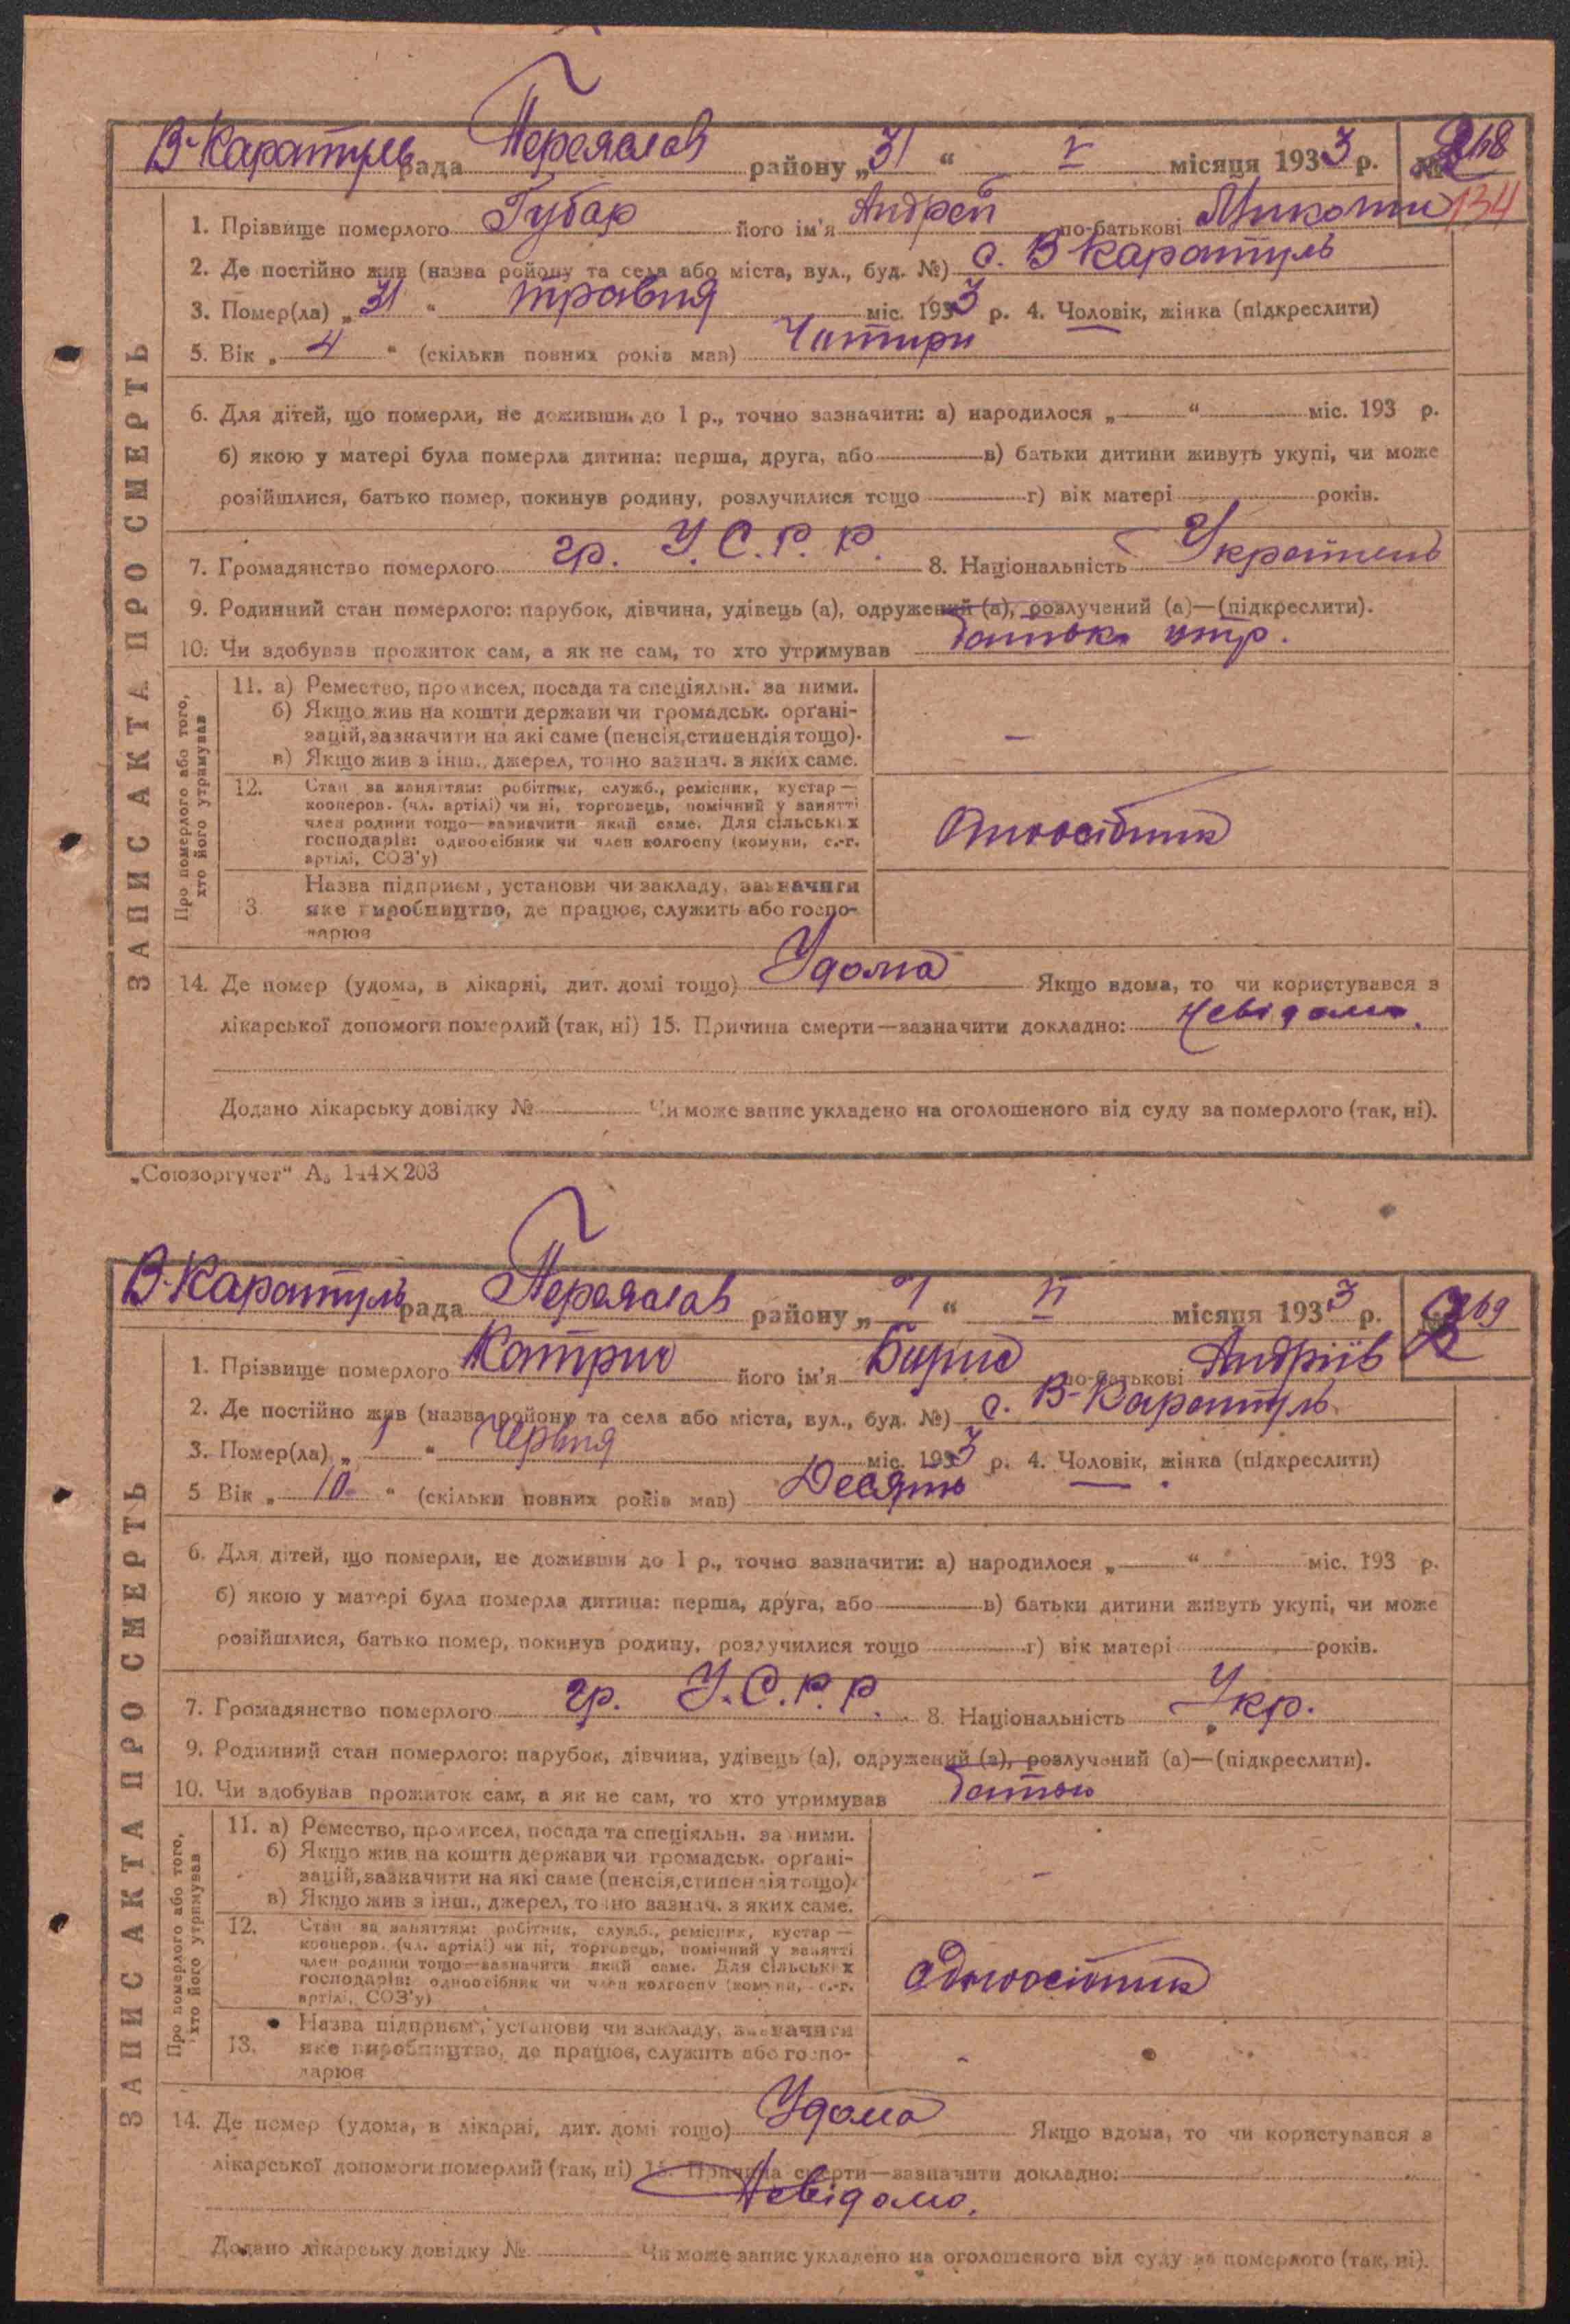 В-Каратуль рада Переяслав району „31“ V місяця 1933 р. № 268
134
1. Прізвище померлого Губар його ім'я Андрей по-батькові Миколи
2. Де постійно жив (назва району та села або міста, вул., буд. №) с. В Каратуль
3. Помер(ла) „31“ травня міс. 1933 р. 4. Чоловік, жінка (підкреслити)
5. Вік „4“ (скільки повних років мав) Чотири
6. Для дітей, що померли, не доживши до 1 р., точно зазначити: а) народилося „ “ міс. 193 р.
б) якою у матері була померла дитина: перша, друга, або в) батьки дитини живуть укупі, чи може
розійшлися, батько помер, покинув родину, розлучилися тощо г) вік матері років.
7. Громадянство померлого гр. У.С.Р.Р. 8. Національність Українець
9. Родинний стан померлого: парубок, дівчина, удівець (а), одружений (а), розлучений (а)—(підкреслити).
10. Чи здобував прожиток сам, а як не сам, то хто утримував батьки
ЗАПИС АКТА ПРО СМЕРТЬ
Про померлого або того, хто його утримував
11. а) Ремество, промисел, посада та спеціяльн. за ними.
б) Якщо жив на кошти держави чи громадськ. орґані-
зацій, зазначити на які саме (пенсія, стипендія тощо).
в) Якщо жив з інш., джерел, точно зазнач. з яких саме.
–
12. Стан за заняттям: робітник, служб., ремісник, кустар—
кооперов. (чл. артілі) чи ні, торговець, помічний у занятті
член родини тощо—зазначити який саме. Для сільських
господарів: одноосібник чи член колгоспу (комуни, с.-г.
артілі, СОЗ'у)
Одноосібник
13. Назва підприєм., установи чи закладу, зазначити
яке виробництво, де працює, служить або госпо-
дарює
14. Де помер (удома, в лікарні, дит. домі тощо) Удома Якщо вдома, то чи користувався з
лікарської допомоги померлий (так, ні) 15. Причина смерти—зазначити докладно: Невідомо.
Додано лікарську довідку № Чи може запис укладено на оголошеного від суду за померлого (так, ні).
„Союзоргучет“ А₅ 144×203
В-Каратуль рада Переяслав району „1“ VI місяця 1933 р. № 269
1. Прізвище померлого Катрич його ім'я Борис по-батькові Андріїв
2. Де постійно жив (назва району та села або міста, вул., буд. №) с. В-Каратуль
3. Помер(ла) „1“ Червня міс. 1933 р. 4. Чоловік, жінка (підкреслити)
5 Вік „10“ (скільки повних років мав) Десять
6. Для дітей, що померли, не доживши до 1 р., точно зазначити: а) народилося „ “ міс. 193 р.
б) якою у матері була померла дитина: перша, друга, або в) батьки дитини живуть укупі, чи може
розійшлися, батько помер, покинув родину, розлучилися тощо г) вік матері років.
7. Громадянство померлого гр. У.С.Р.Р. 8. Національність Укр.
9. Родинний стан померлого: парубок, дівчина, удівець (а), одружений (а), розлучений (а)—(підкреслити).
10. Чи здобував прожиток сам, а як не сам, то хто утримував батьки
ЗАПИС АКТА ПРО СМЕРТЬ
Про померлого або того, хто його утримував
11. а) Ремество, промисел, посада та спеціяльн. за ними.
б) Якщо жив на кошти держави чи громадськ. орґані-
зацій, зазначити на які саме (пенсія, стипендія тощо).
в) Якщо жив з інш., джерел, точно зазнач. з яких саме.
–
12. Стан за заняттям: робітник, служб., ремісник, кустар—
кооперов. (чл. артілі) чи ні, торговець, помічний у занятті
член родини тощо—зазначити який саме. Для сільських
господарів: одноосібник чи член колгоспу (комуни, с.-г.
артілі, СОЗ'у)
Одноосібник
13. Назва підприєм., установи чи закладу, зазначити
яке виробництво, де працює, служить або госпо-
дарює
-
14. Де помер (удома, в лікарні, дит. домі тощо) Удома Якщо вдома, то чи користувався з
лікарської допомоги померлий (так, ні) 15. Причина смерти—зазначити докладно:
Невідомо.
Додано лікарську довідку № Чи може запис укладено на оголошеного від суду за померлого (так, ні).